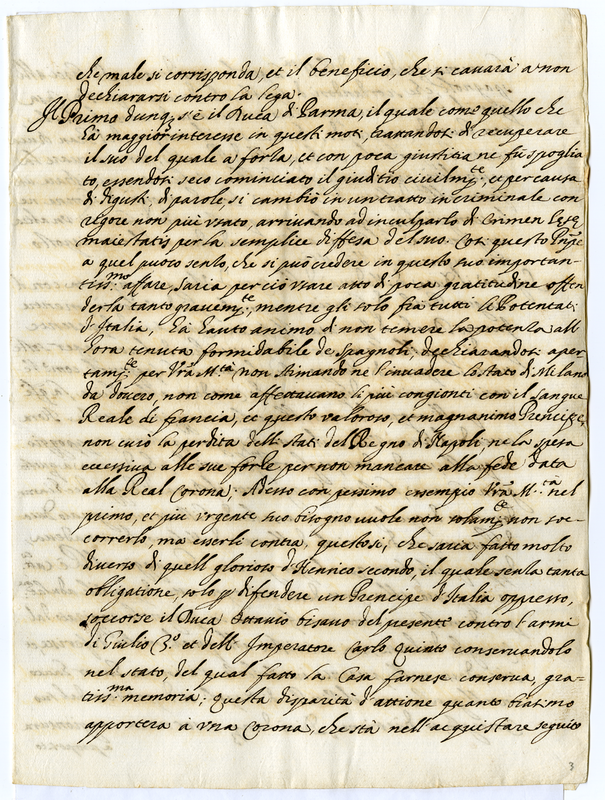 che male si corrisponda, et il beneficio, che si cavarà a non
dechiararsi contro la lega.
Il Primo dunq. s'è il Duca di Parma, il quale come quello che
hà maggior interesse in questi moti, trattandosi di recuperare
il suo del quale a forza, et con poca giustitia ne fù spoglia
to, essendosi seco cominciato il giuditio civilm.te, et per causa
di disgusti, di parole, si cambiò in un tratto in criminale con
rigore non più usato, arrivando ad inculparlo di Crimen lese
maiestatis per la semplice diffesa del suo. Così questo Pnpe
a quel puoco senso, che si può credere in questo suo importan-
tiss.mo affare, saria perciò usare atto di poca gratitudine offen
derla tanto gravem.te, mentre gli solo frà tutti li Potentati
d'Italia, hà hauto animo di non temere la potenza all
hora tenuta formidabile de spagnoli, dechiarandosi aper
tam.te per Vrà M.tà non stimando ne l'invadere lo stato di Milano
da dovero, non come affettavano li più congionti con il sangue
Reale di francia, et questo valoroso, et magnanimo Prencipe,
non curò la perdita delli stati del Regno di Napoli, ne la spesa
eccessiva alle sue forze per non mancare alla fede data
alla Real Corona; Adesso con pessimo essempio Vrà M.tà nel
primo, et più urgente suo bisogno vuole non solam.te non soc-
correrlo, ma esserli contra, questo si, che saria fatto molto
diverso di quell glorioso d'Henrico secondo, il quale senza tanta
obligatione, solo p difendere un Prencipe d'Italia oppresso,
soccorse il Duca Ottavio bisavo del presente contro l'armi
di Giulio 3.o et dell' Imperatore Carlo Quinto conservandolo
nel stato, del qual fatto la Casa farnese conserva, gra-
tiss.ma memoria; Questa disparità d'attione quanto biasimo
apporterà à una Corona, che stà nell' acquistare seguito
3